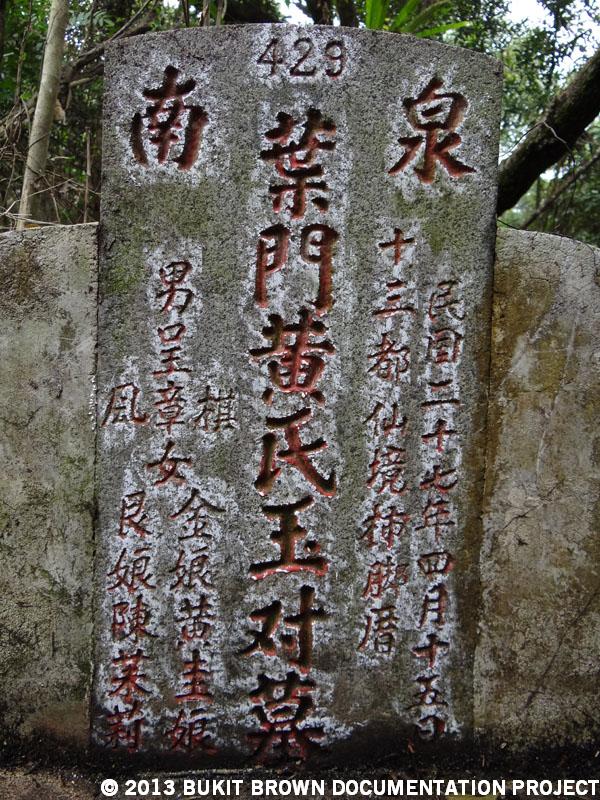 429
泉南
民国二十七年四月十五日
十三都仙境柿脚厝
葉門黄氏玉对墓
棋
男呈章女
金娘黄圭娘
艮娘陳茉莉
© 2013 BUKIT BROWN DOCUMENTATION PROJECT